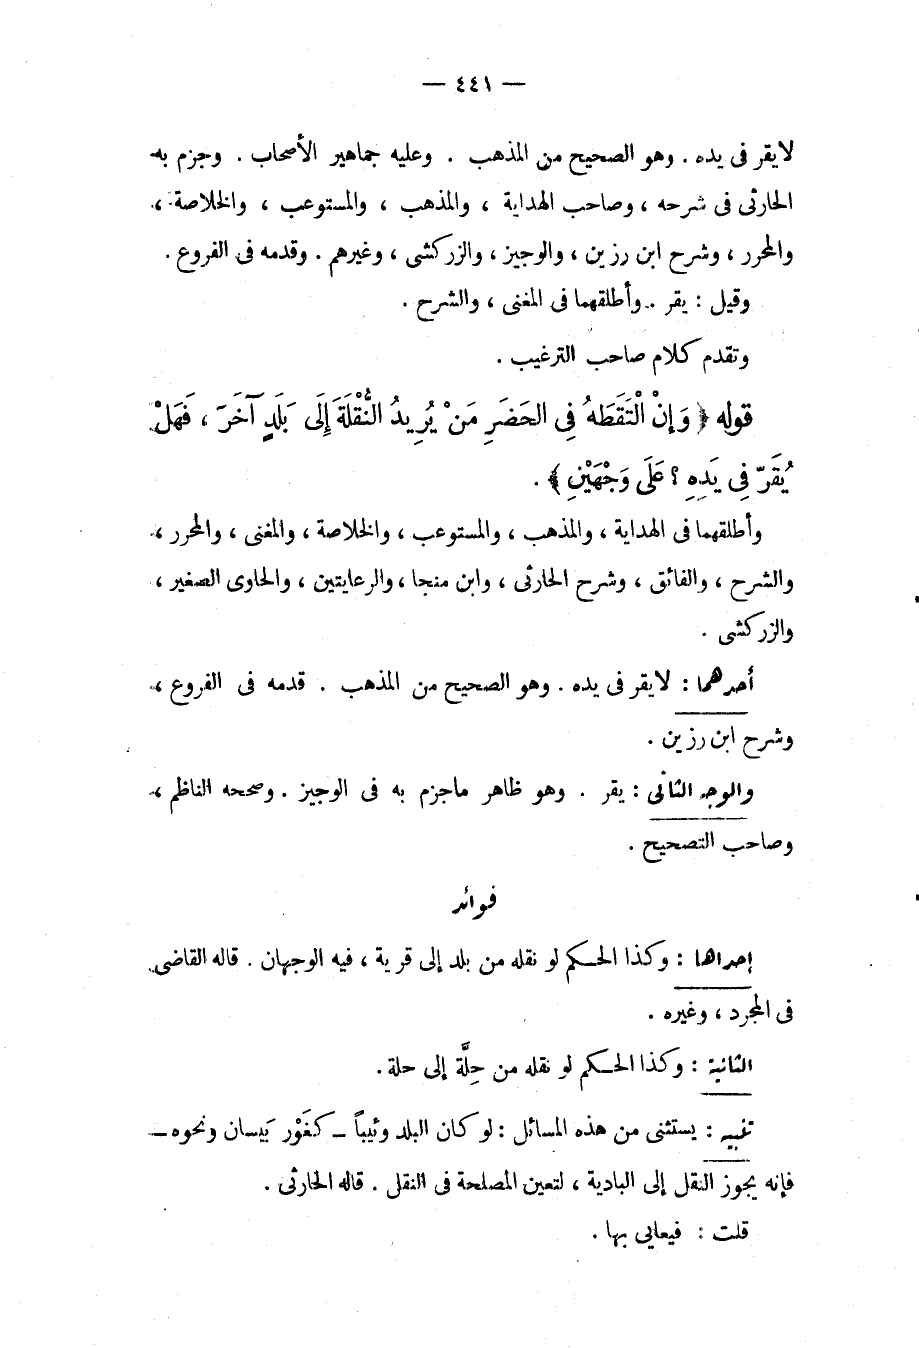 — ٤٤١ —
لايقر فى يده . وهو الصحيح من المذهب . وعليه جماهير الأصحاب . وجزم به
الحارثى فى شرحه ، وصاحب الهداية ، والمذهب ، والمستوعب ، والخلاصة ،
والمحرر ، وشرح ابن رزين ، والوجيز ، والزركشى ، وغيرهم . وقدمه فى الفروع .
وقيل : يقر . وأطلقهما فى المغنى ، والشرح .
وتقدم كلام صاحب الترغيب .
قوله ﴿ وَإِنْ الْتَقَطَهُ فِى الحَضَرِ مَنْ يُرِيدُ النُّقْلَةَ إِلَى بَلَدٍ آخَرَ ، فَهَلْ
يُقَرّ فِى يَدِهِ ؟ عَلَى وَجْهَيْنِ ﴾ .
وأطلقهما فى الهداية ، والمذهب ، والمستوعب ، والخلاصة ، والمغنى ، والمحرر ،
والشرح ، والفائق ، وشرح الحارثى ، وابن منجا ، والرعايتين ، والحاوى الصغير ،
والزركشى .
أحدهما : لايقر فى يده . وهو الصحيح من المذهب . قدمه فى الفروع ،
وشرح ابن رزين .
والوجه الثانى : يقر . وهو ظاهر ماجزم به فى الوجيز . وصححه الناظم ،
وصاحب التصحيح .
فوائد
إحداها : وكذا الحكم لو نقله من بلد إلى قرية ، فيه الوجهان . قاله القاضى
فى المجرد ، وغيره .
الثانية : وكذا الحكم لو نقله من حِلَّة إلى حلة .
تنبيه : يستثنى من هذه المسائل : لو كان البلد وئيباً – كغَوْر بَيسان ونحوه –
فإنه يجوز النقل إلى البادية ، لتعين المصلحة فى النقل . قاله الحارثى .
قلت : فيعايى بها .